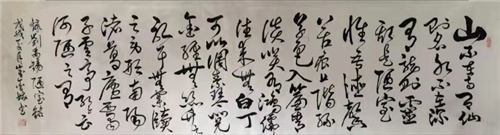 山不在高有仙
则名水不在深
有龙则灵
斯是陋室
惟吾德馨
苔痕上阶绿
草色入簾青
谈笑有鸿儒
往来無白丁
可以调素琴阅
金经無丝竹之
乱耳無案牍
之劳形南阳
诸葛廬西蜀
子雲亭孔子云
何陋之有
录刘禹锡陋室铭
戊戌